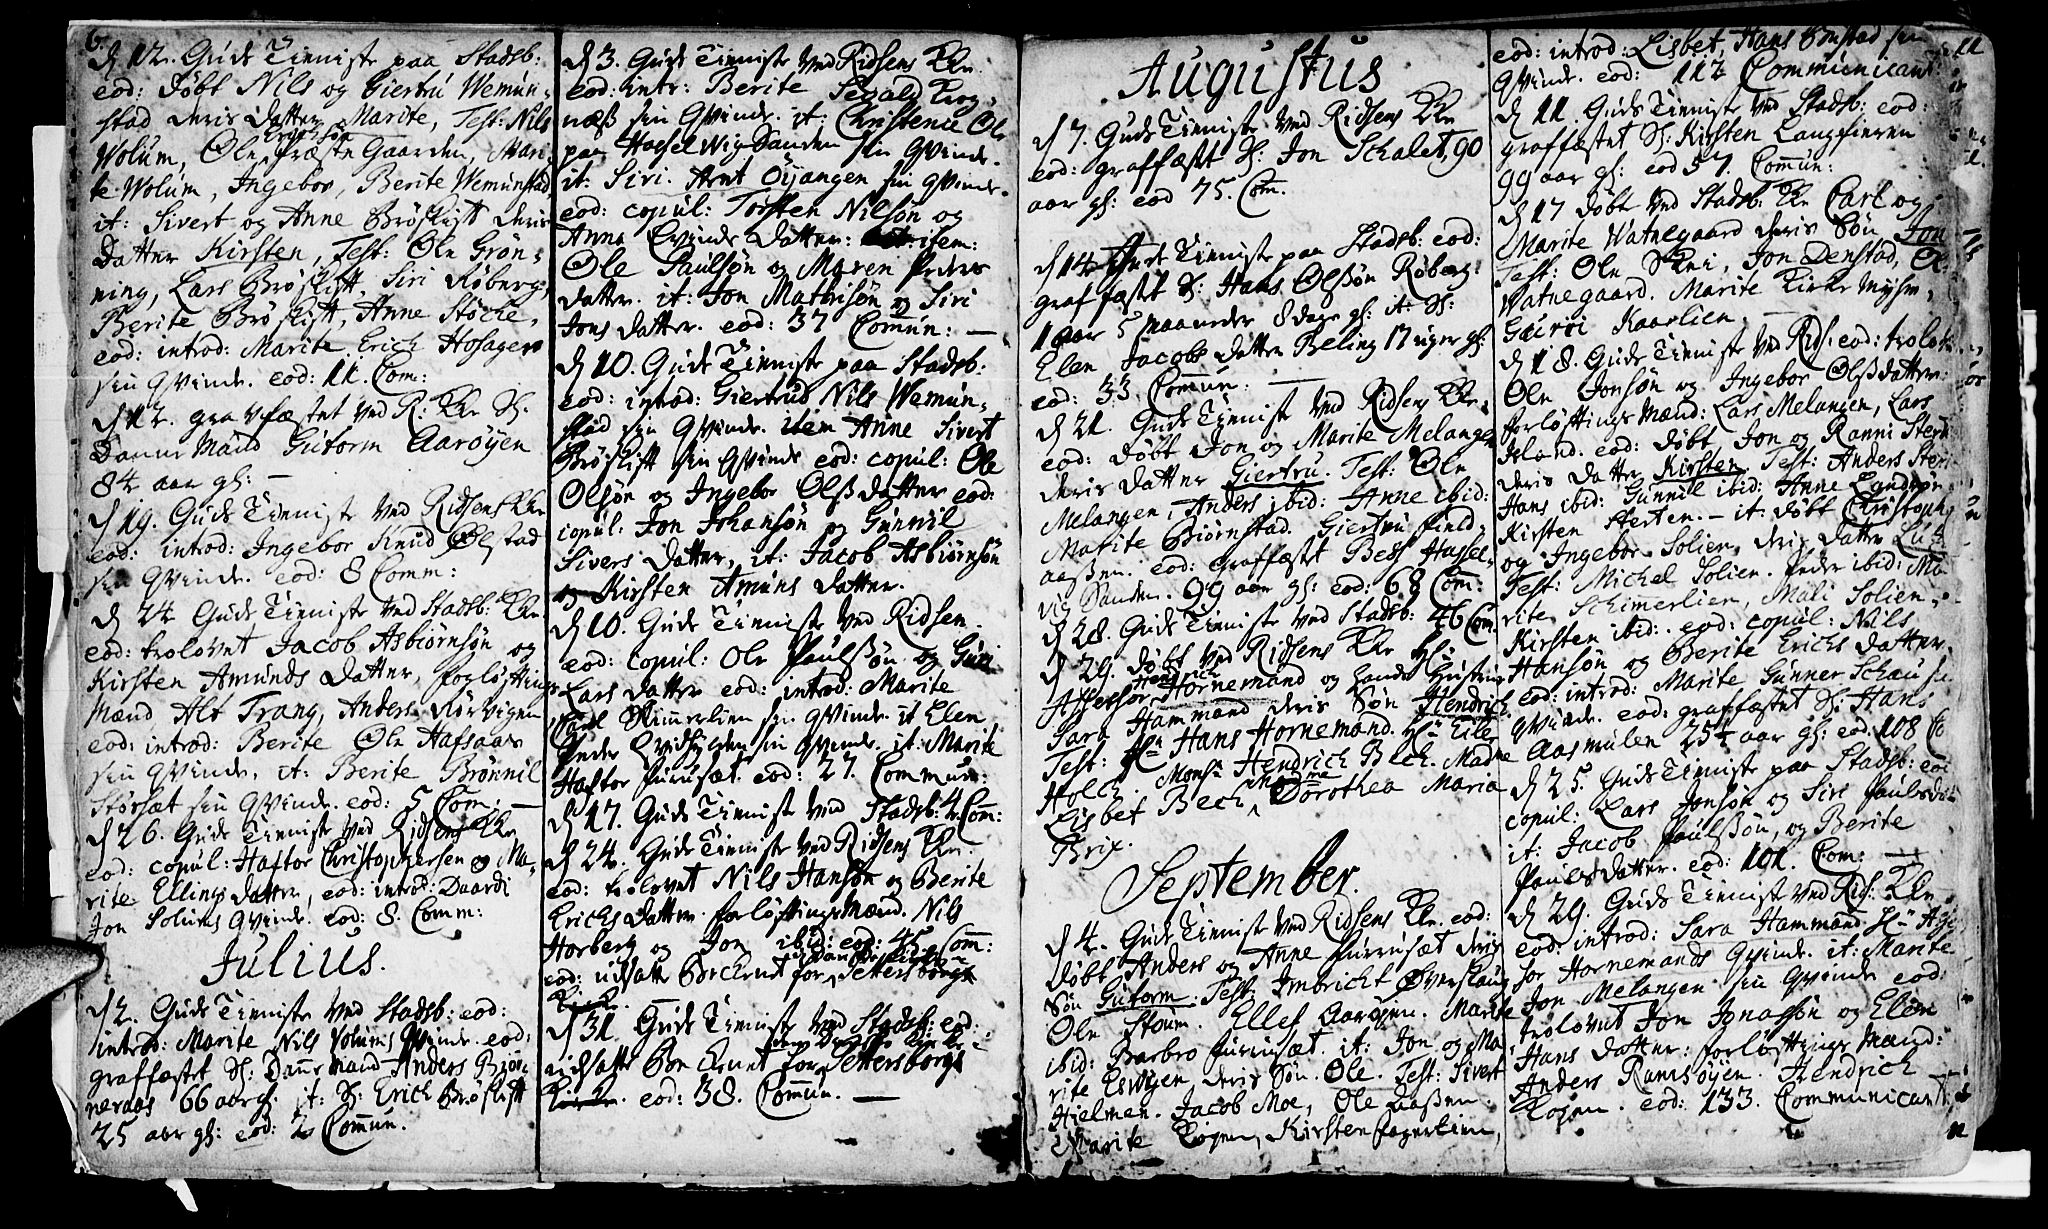 6.
d 12. Guds Tienniste paa Stadsb:
eod: døbt Nils og Giertru Wemun-
stad deris datter Marite, Test: Nils
Wolum, Ole Præste Gaarden, Mari-
te Wolum, Ingebor, Berite Wemunstad,
it: Sivert og Anne Brøskift deris
datter Kirsten, Test: Ole Grøn-
ning, Lars Brøskift, Siri Røberg,
Berite Brøskift, Anne Støche,
eod: introd: Marite Erich Hofagers
sin Qvinde. eod: 11. Com:
d 12. gravfæstet ved R: Kke S:
Danne Mand Gutorm Aarøyen
84 aar gl: —
d 19. Guds Tienniste ved Ridsens Kke
eod: introd: Ingebor Knud Ølstad
sin Qvinde. eod: 8 Comm:
d 24 Guds Tienniste ved Stadsb: Kke
eod: trolovet Jacob Asbiørnsøn og
Kirsten Amunds datter, forløftings
Mænd Alt Trang, Anders Rørvigen
eod: introd: Berite Ole Hafsaas
sin Qvinde, it: Berite Brønnil
Størsæt sin Qvinde. eod: 5 Com: —
d 26. Guds Tienniste ved Ridsens Kke
eod: copul: Haftor Christophersen og Ma-
rite Ellings datter, eod: introd: Daardi
Jon Solums Qvinde. eod: 8. Comm:
Julius.
d 2. Guds Tienniste ved Stadsb: eod:
introd: Marite Nils Volums Qvinde. eod:
graffæstet S: Danne Mand Anders Biør-
neraas 66 aar gl: it: S: Erich Brøskift
25 aar gl: eod: 2 Commun.
d 3. Guds Tienniste ved Ridsens Kke.
eod: intr: Berite Sevald Krog-
næss sin Qvinde. it: Christence Ole
paa HasselWig Sanden sin Qvinde.
it: Siri Arnt Øyangen sin Qvinde.
eod: copul: Torsten Nilsøn og
Anne Evinds datter: item:
Ole Paulsøn og Maren Peders
datter. it: Jon Mathisøn og Siri
Jons datter. eod: 37 Commun: —
d 10. Guds Tienniste paa Stadsb:
eod: introd: Giertrud Nils Wemun-
stad sin Qvinde. item Anne Sivert
Brøskift sin Qvinde eod: copul: Ole
Olsøn og Ingebor Olss datter eod:
copul: Jon Johansøn og Gunnil
Sivers datter, it: Jacob Asbiørnsøn
og Kirsten Amuns datter.
d 10. Guds Tienniste ved Ridsen.
eod: copul: Ole Paulssøn og Guri
Lars datter eod: introd: Marite
Skimerlien sin Qvinde. it Elen
Peder sin Qvinde. it: Marite
Haftor Furusæt. eod: 27. Commun:
d 17. Guds Tienniste ved Stadsb: 4 Com:
d 24. Guds Tienniste ved Ridsens Kke.
eod: trolovet Nils Hansøn og Berite
Erichs datter. forløftings Mænd. Nils
Horberg og Jon ibid: eod: 45 Com:
eod: udsatte Becknet for Pettersborgs
d 31. Guds Tienniste ved Stadsb: eod:
udsatte Becknet for Pettersborgs
eod: 38. Commun. —
Augustus
d 7. Guds Tienniste ved Ridsens Kke
eod: graffæst S: Jon Schalet, 90
aar gl: eod 75. Com.
d 14 Guds Tienniste paa Stadsb: eod:
graffæst S: Hans Olssøn Røberg:
1 aar 5 maaneder 8 dage gl: it: S:
Elen Jacobs datter Beling 17 uger gl:
eod: 33. Commun: —
d 21. Guds Tienniste ved Ridsens Kke.
eod: døbt Jon og Marite Melangen
deris datter Giertru. Test: Ole
Melangen, Anders ibid: Anne ibid:
Marite Biørnstad. Giertru
aassen. eod: graffæst Bess Hassel-
vig Sanden. 99 aar gl: eod: 68 Com.
d 28. Guds Tienniste ved Stadsb: 46 Com.
d 29. døbt ved Ridsens Kke Hr
Assessor Hornemand og hands Hustru
Sara Hammand deris Søn Hendrich.
Test: Hr Hans Hornemand. Hr Eiler
Holch. Monsr Hendrich Bech. Madme
Lisbet Bech, Madme Dorothea Maria
Brix.
September.
d 4. Guds Tienniste ved Ridsens Kke. eod:
døbt Anders og Anne Furrusæt deris
Søn Gutorm. Test: Imbricht Øverslaug
Ole Stoum. Elles Aarøyen. Marite
ibid: Barbro Furrusæt. it: Jon og Ma-
rite Esvigen, deris Søn. Ole. Test: Sivert
Hielmen. Jacob Moe, Ole Aassen.
Marite Togen, Kirsten Fagerlien,
eod: introd: Lisbet, Hans Onstad sin
Qvinde. eod: 112 Communicant:
d 11. Guds Tienniste ved Stadsb: eod:
graffæstet S: Kirsten Langfieren
99 aar gl: eod 57. Commun:
d 17 døbt ved Stadsb: Kke Carl og
Marite Watnegaard deris Søn Jon
Test: Ole Jon Denstad, O
Watnegaard. Marite Kirke Myhr,
Gurrøi Kaarlien. —
d 18. Guds Tienniste ved Rids: eod: trolov:
Ole Jonsøn og Ingebor Olssdatter:
forløftings Mænd: Lars Melangen, Lars
Island. eod: døbt Jon og Ranni Sterten
deris datter Kirsten Test: Anders Sterten
Hans ibid: Gunnil ibid: Anne
Kirsten Sterten. — it: døbt Christoph
og Ingebor Solien deris datter
Test: Michel Solien. Peder ibid: Ma-
rite Schimerlien, Mali Solien,
Kirsten ibid: eod: copul: Nils
Hansøn og Berite Erichs datter.
eod: introd: Marite Gunner Schau sin
Qvinde. eod: graffæstet S: Hans
Aasmulen 25½ aar gl: eod: 108 C
d 25. Guds Tienniste paa Stadsb: eod
copul: Lars Jonsøn og Siri Paulsdat:
it: Jacob Paulssøn, og Berite
Paulsdatter. eod: 101. Com: —
d 29. Guds Tienniste ved Rids: Kke
eod: introd: Sara Hammand Hr
sor Hornemands Qvinde. it: Marite
Jon Melangen sin Qvinde eod:
trolovet Jon Jonassøn og Elen
Hans datter: forløftings Mænd:
Anders Ramsøyen. Hendrich
Togen. eod: 133. Communicant.